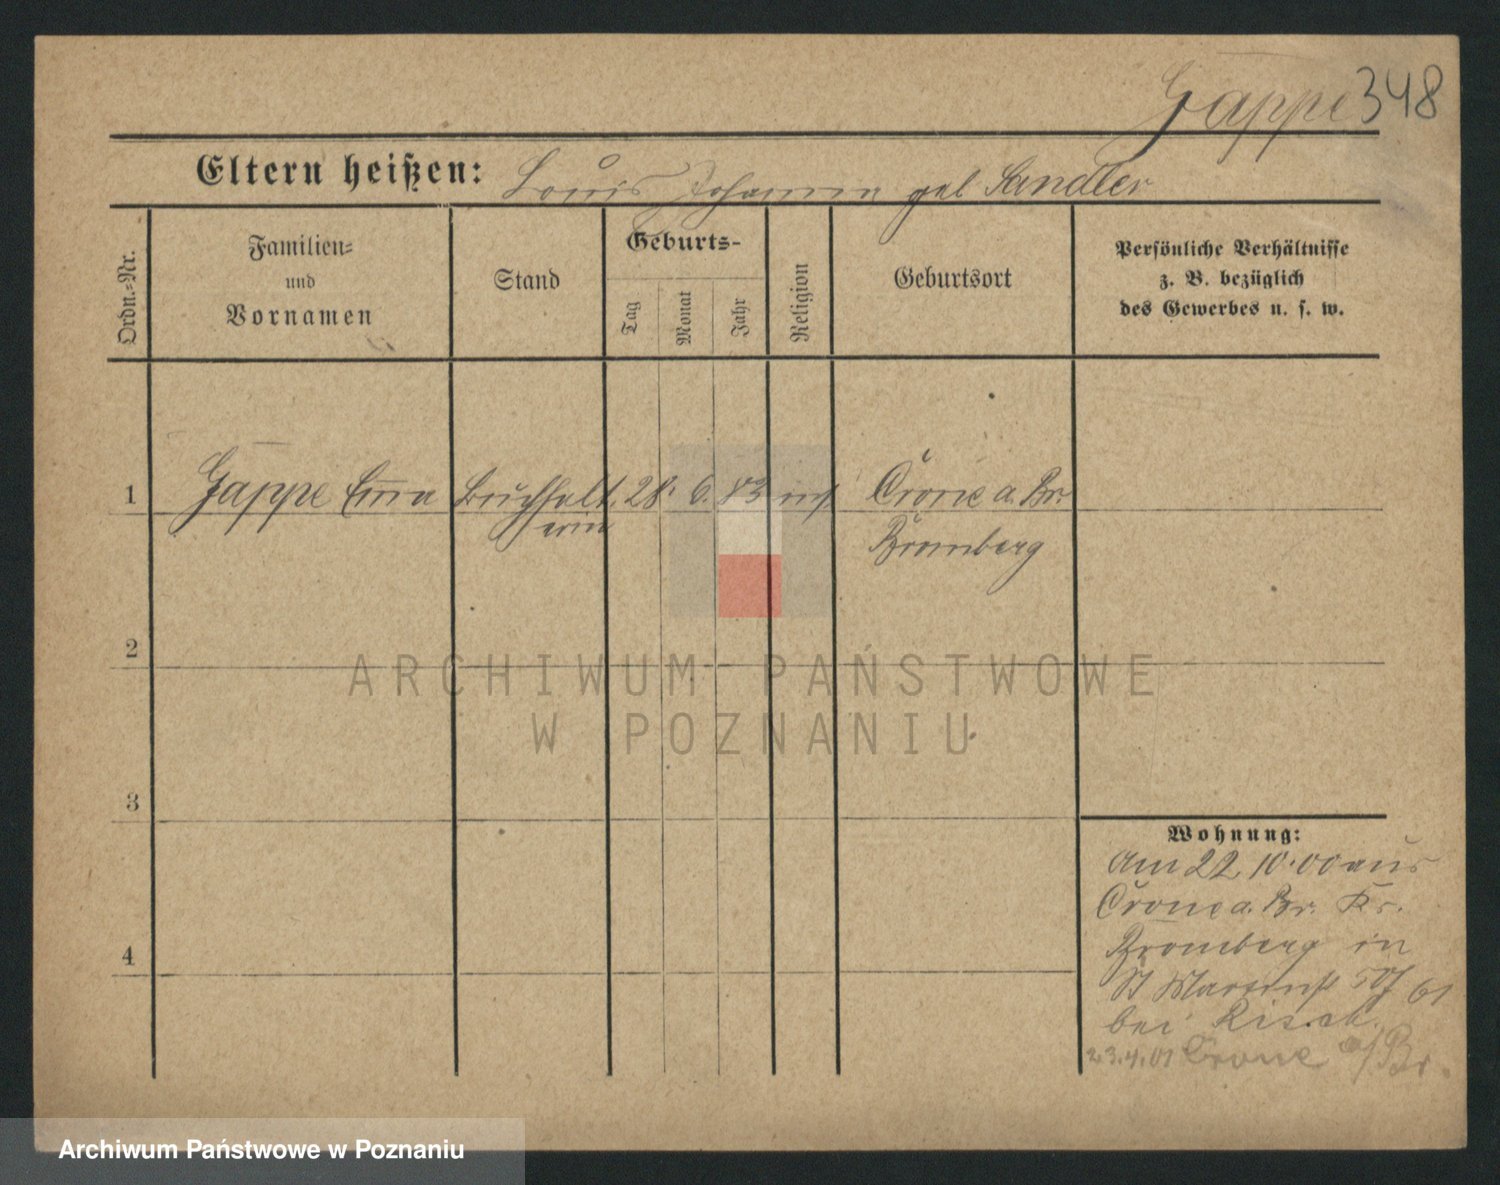 Gappe 348
Eltern heißen: Louis Johanna geb Sandler
Ordn.=Nr.
Familien=
und
Vornamen
Stand
Geburts-
Tag
Monat
Jahr
Religion
Geburtsort
Persönliche Verhältnisse
z. B. bezüglich
des Gewerbes u. s. w.
1 Gappe Emma Buchhalt. 28. 6. 83 Crone a. Br.
erin
Bromberg
2
3
4
Wohnung:
Am 22.10.00 aus
Crone a. Br. Kr.
Bromberg in
St Martinst 61
bei
23.4.01 Crone a/Br.
ARCHIWUM PAŃSTWOWE
W POZNANIU
Archiwum Państwowe w Poznaniu